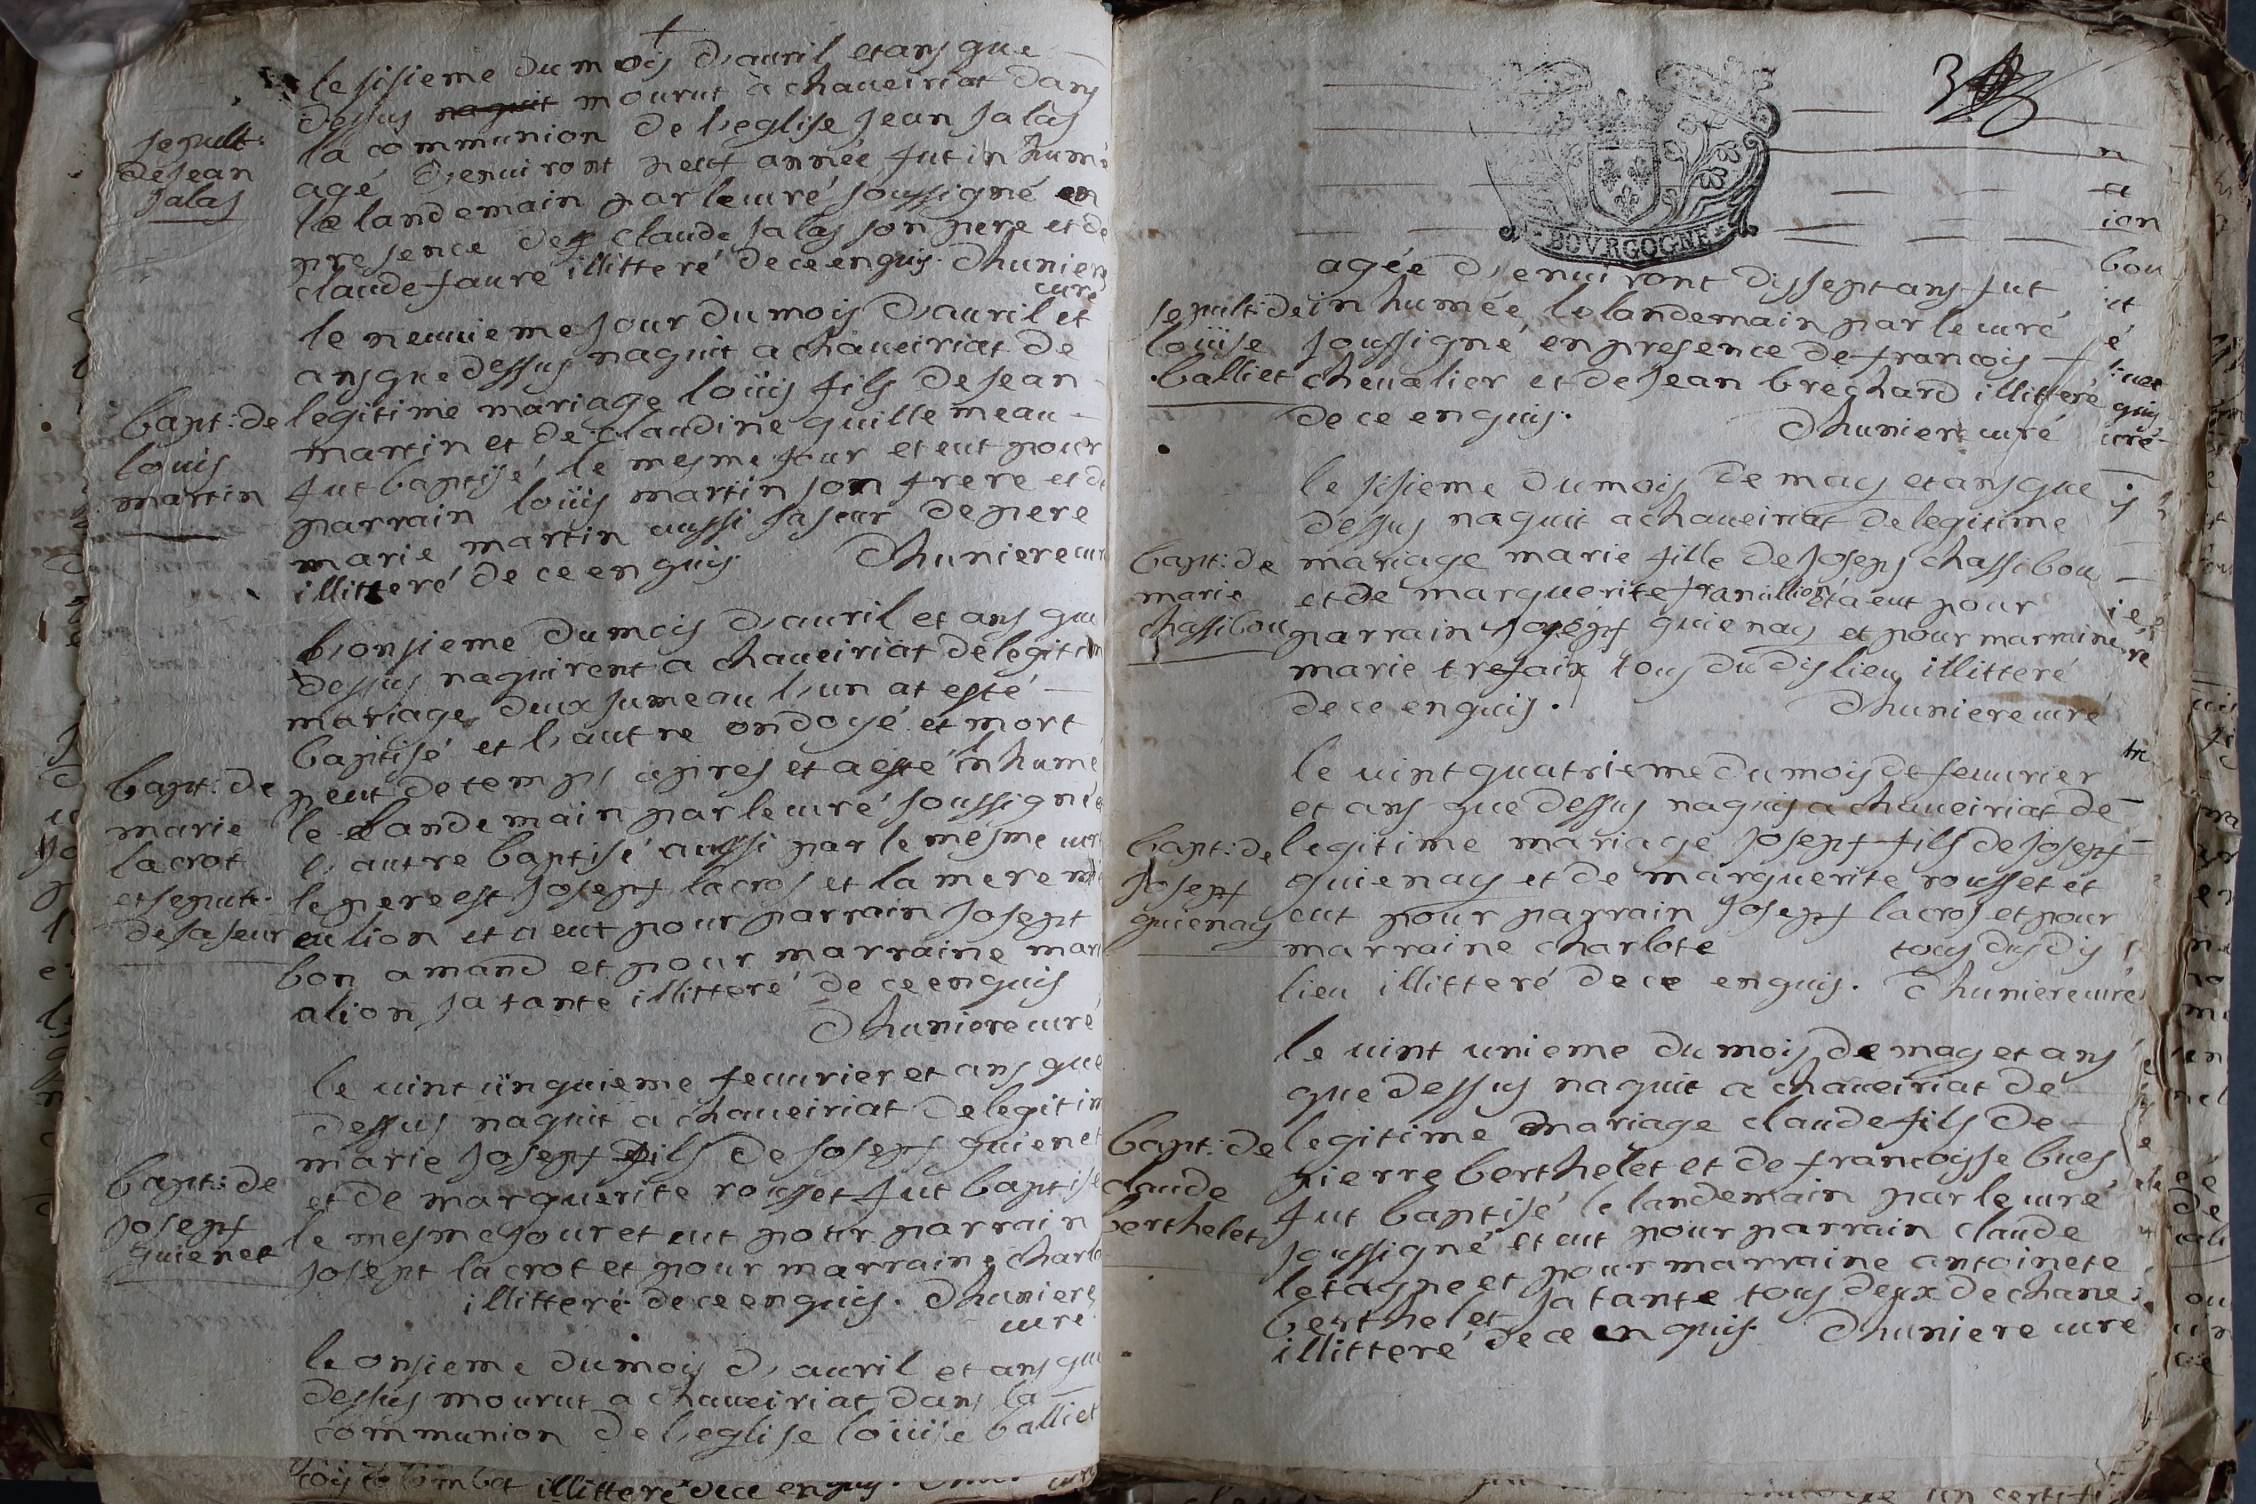 le sisieme du mois d'auril et ans que
dessus naquit mourut à chaueiriat dans
la communion de l'eglise jean jalas
sepult:
de jean
jalas
agé d'enuiront neuf année fut inhumé
le landemain par le curé soussigné en
presence de claude jalas son pere et de
claude faure illitteré de ce enquis. Dhuniere
curé
le neuuieme jour du mois d'auril et
ans que dessus naquit a chaueiriat de
bapt: de
louis
martin
legitime mariage loüis fils de jean
martin et de claudine guillemeau
fut baptisé le mesme jour et eut pour
parrain loüis martin son frere et de
marie martin aussi sa seur de pere
illitteré de ce enquis Dhuniere curé
l'onsieme du mois d'auril et ans que
dessus naquirent a chaueiriat de legitim
mariage deux jumeau l'un at esté
baptisé et l'autre ondoyé et mort
bapt: de
marie
lacrot
et sepult.
de sa seur
peut de temps apres et a esté inhumé
le landemain par le curé soussigné
l'autre baptisé aussi par le mesme curé
le pere est josept lacros et la mere
alion et a eut pour parrain josept
bon amand et pour marraine mari
alion sa tante illitteré de ce enquis
Dhuniere curé
le uint cinquieme feuurier et ans que
dessus naquit a chaueiriat de legitim
marie josept fils de josept guienet
bapt: de
josept
guienet
et de marguerite rousset fut baptisé
le mesme jour et eut pour parrain
josept lacrot et pour marraine charlo
illitteré de ce enquis. Dhuniere
curé
le onsieme du mois d'auril et ans que
dessus mourut a chaueiriat dans la
communion de l'eglise loüise balliet
illitteré de ce enquis.
3
BOVRGOGNE
agée d'enuiront dissept ans fut
sepult: de
loüise
balliet
inhumée le landemain par le curé
soussigné en presence de francois
cheualier et de jean brechard illitteré
de ce enquis. Dhuniere curé
le sisieme du mois de may et ans que
dessus naquit a chaueiriat de legitime
bapt: de
marie
chassibou
mariage marie fille de josept chassibou
et de marguerite et a eut pour
parrain josept guienay et pour marraine
marie trefaix tous du dis lieu illitteré
de ce enquis. Dhuniere curé
le uint quatrieme du mois de feuurier
et ans que dessus naquis a chaueiriat de
bapt: de
josept
guienay
legitime mariage josept fils de josept
guienay et de marguerite rousset et
eut pour parrain josept lacros et pour
marraine charlote tous du dis
lieu illitteré de ce enquis. Dhuniere curé
le uint unieme du mois de may et ans
que dessus naquit a chaueiriat de
bapt: de
claude
berthelet
legitime mariage claude fils de
pierre berthelet et de francoisse bues
fut baptisé le landemain par le curé
soussigné et eut pour parrain claude
letagne et pour marraine antoinete
berthelet sa tante tous deux de chaue
illitteré de ce enquis. Dhuniere curé